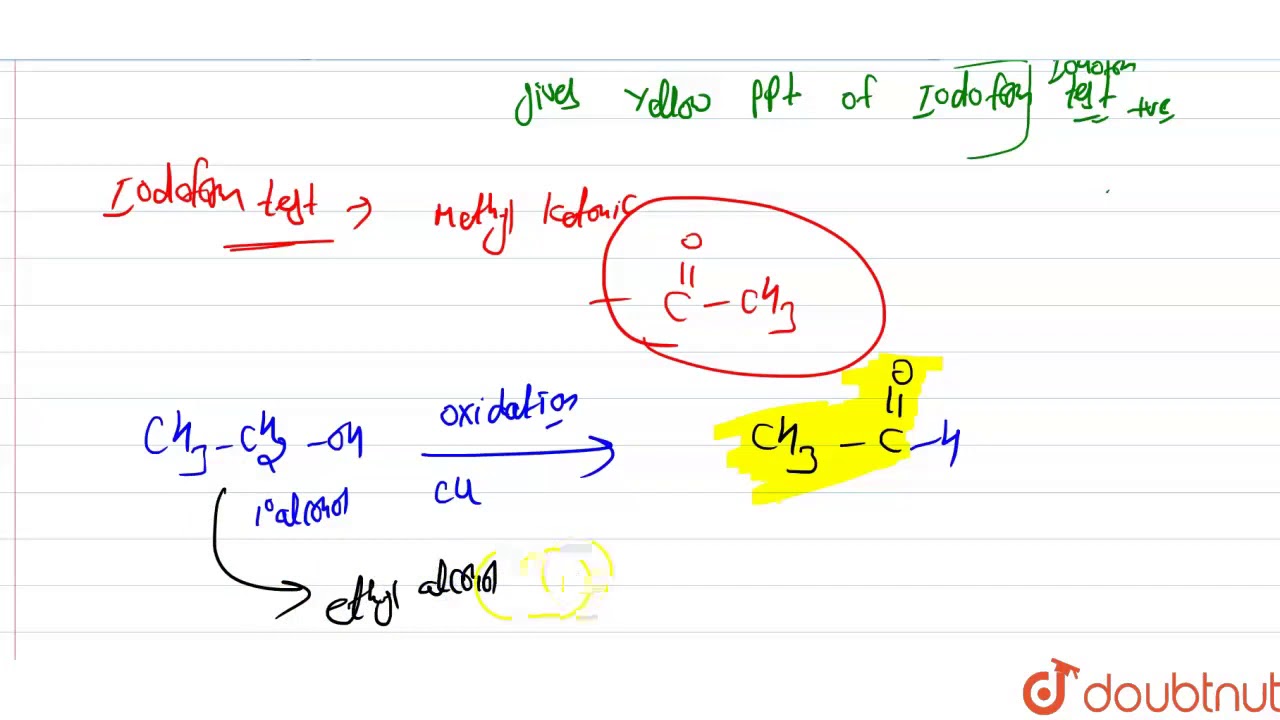 gives Yellow ppt of Iodoform
Iodoform test +ve
Iodoform test → Methyl Ketonic
O
||
C - CH3
CH3 - CH2 - OH oxidation
Cu
O
||
CH3 - C - H
1° alcohol
ethyl alcohol
doubtnut